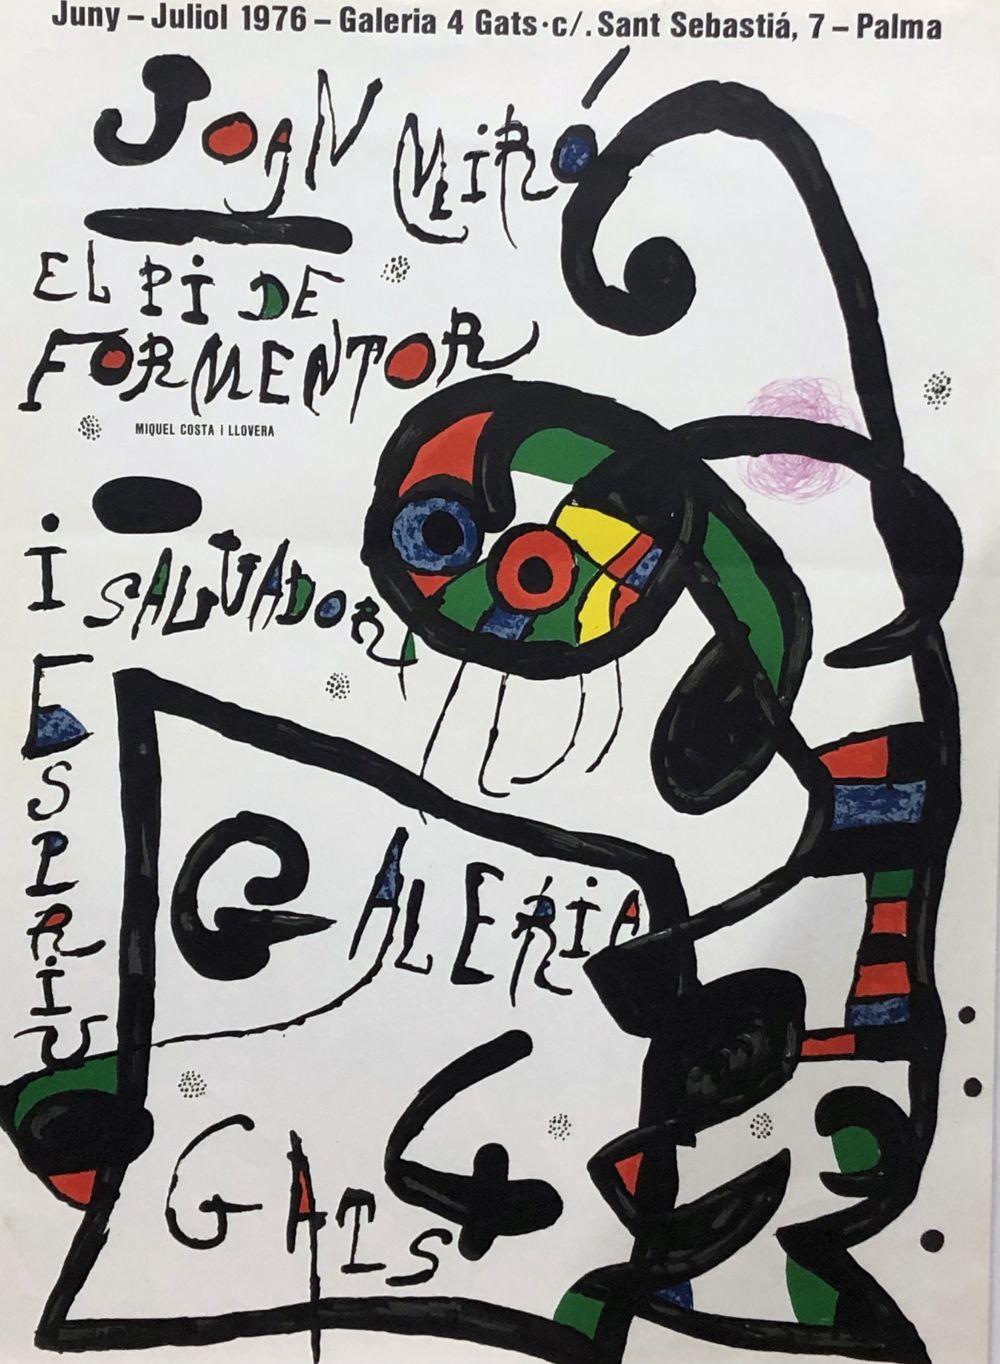 Juny – Juliol 1976 – Galeria 4 Gats · c/. Sant Sebastiá, 7 – Palma
JOAN MIRÓ
EL PI DE
FORMENTOR
MIQUEL COSTA i LLOVERA
i SALVADOR
ESPRIU
GALERIA
4
GATS